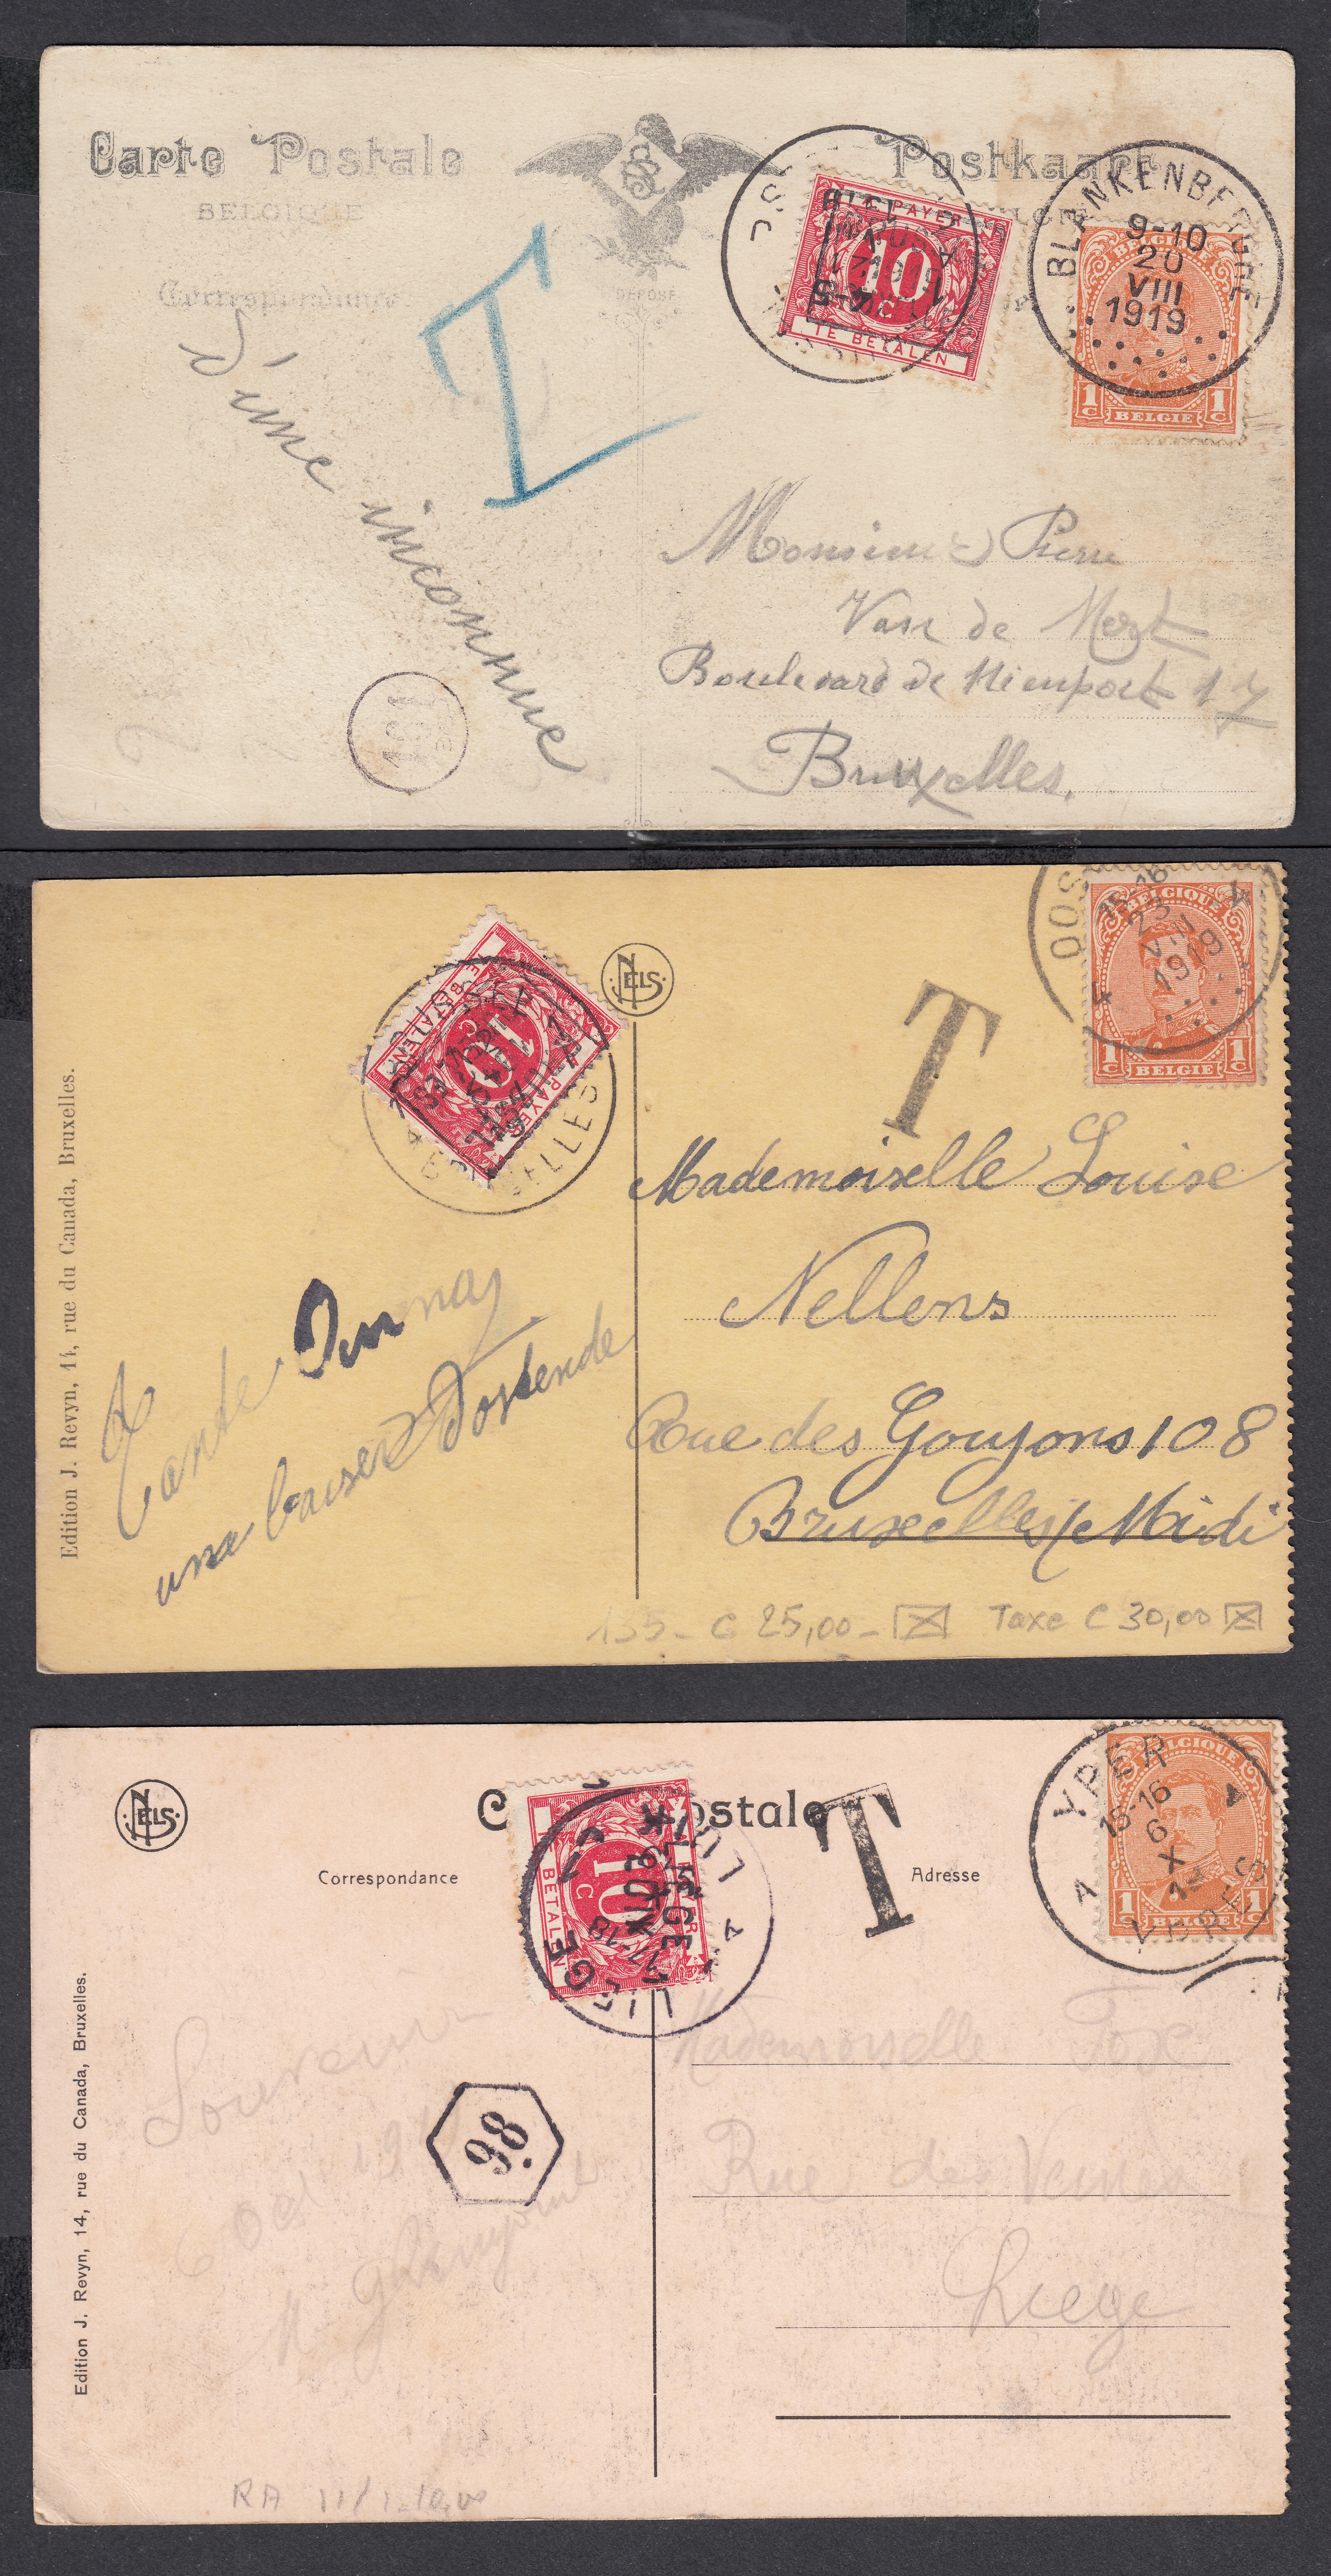 Carte Postale
Postkaart
BELGIQUE
Correspondance
DÉPOSÉ
A PAYER
10
C
TE BETALEN
BLANKENBERGHE
9-10
20
VIII
1919
BELGIQUE
1 C
1 C
BELGIE
T
d'une inconnue
Monsieur Pierre
Van de
Boulevard de Nieuport 17
Bruxelles.
101
NELS
TE BETALEN
10
C
A PAYER
BRUXELLES
T
OOS
15-16
23
VIII
1919
BELGIQUE
1 C
1 C
BELGIE
Edition J. Revyn, 14, rue du Canada, Bruxelles.
Tante
un baiser d'Ostende
Mademoiselle Louise
Nellens
Rue des Goujons 108
Bruxelles/Midi
135 - C 25,00 - Taxe C 30,00
NELS
C ostale
Correspondance
Adresse
T
10
C
BETALEN
LIEGE
LUIK
17-18
A YPER
15-16
6
X
YPRES
BELGIQUE
1 C
1 C
BELGIE
Edition J. Revyn, 14, rue du Canada, Bruxelles.
98.
Souvenir
6 Oct
Mademoiselle Fox
Rue des
Liege
RA